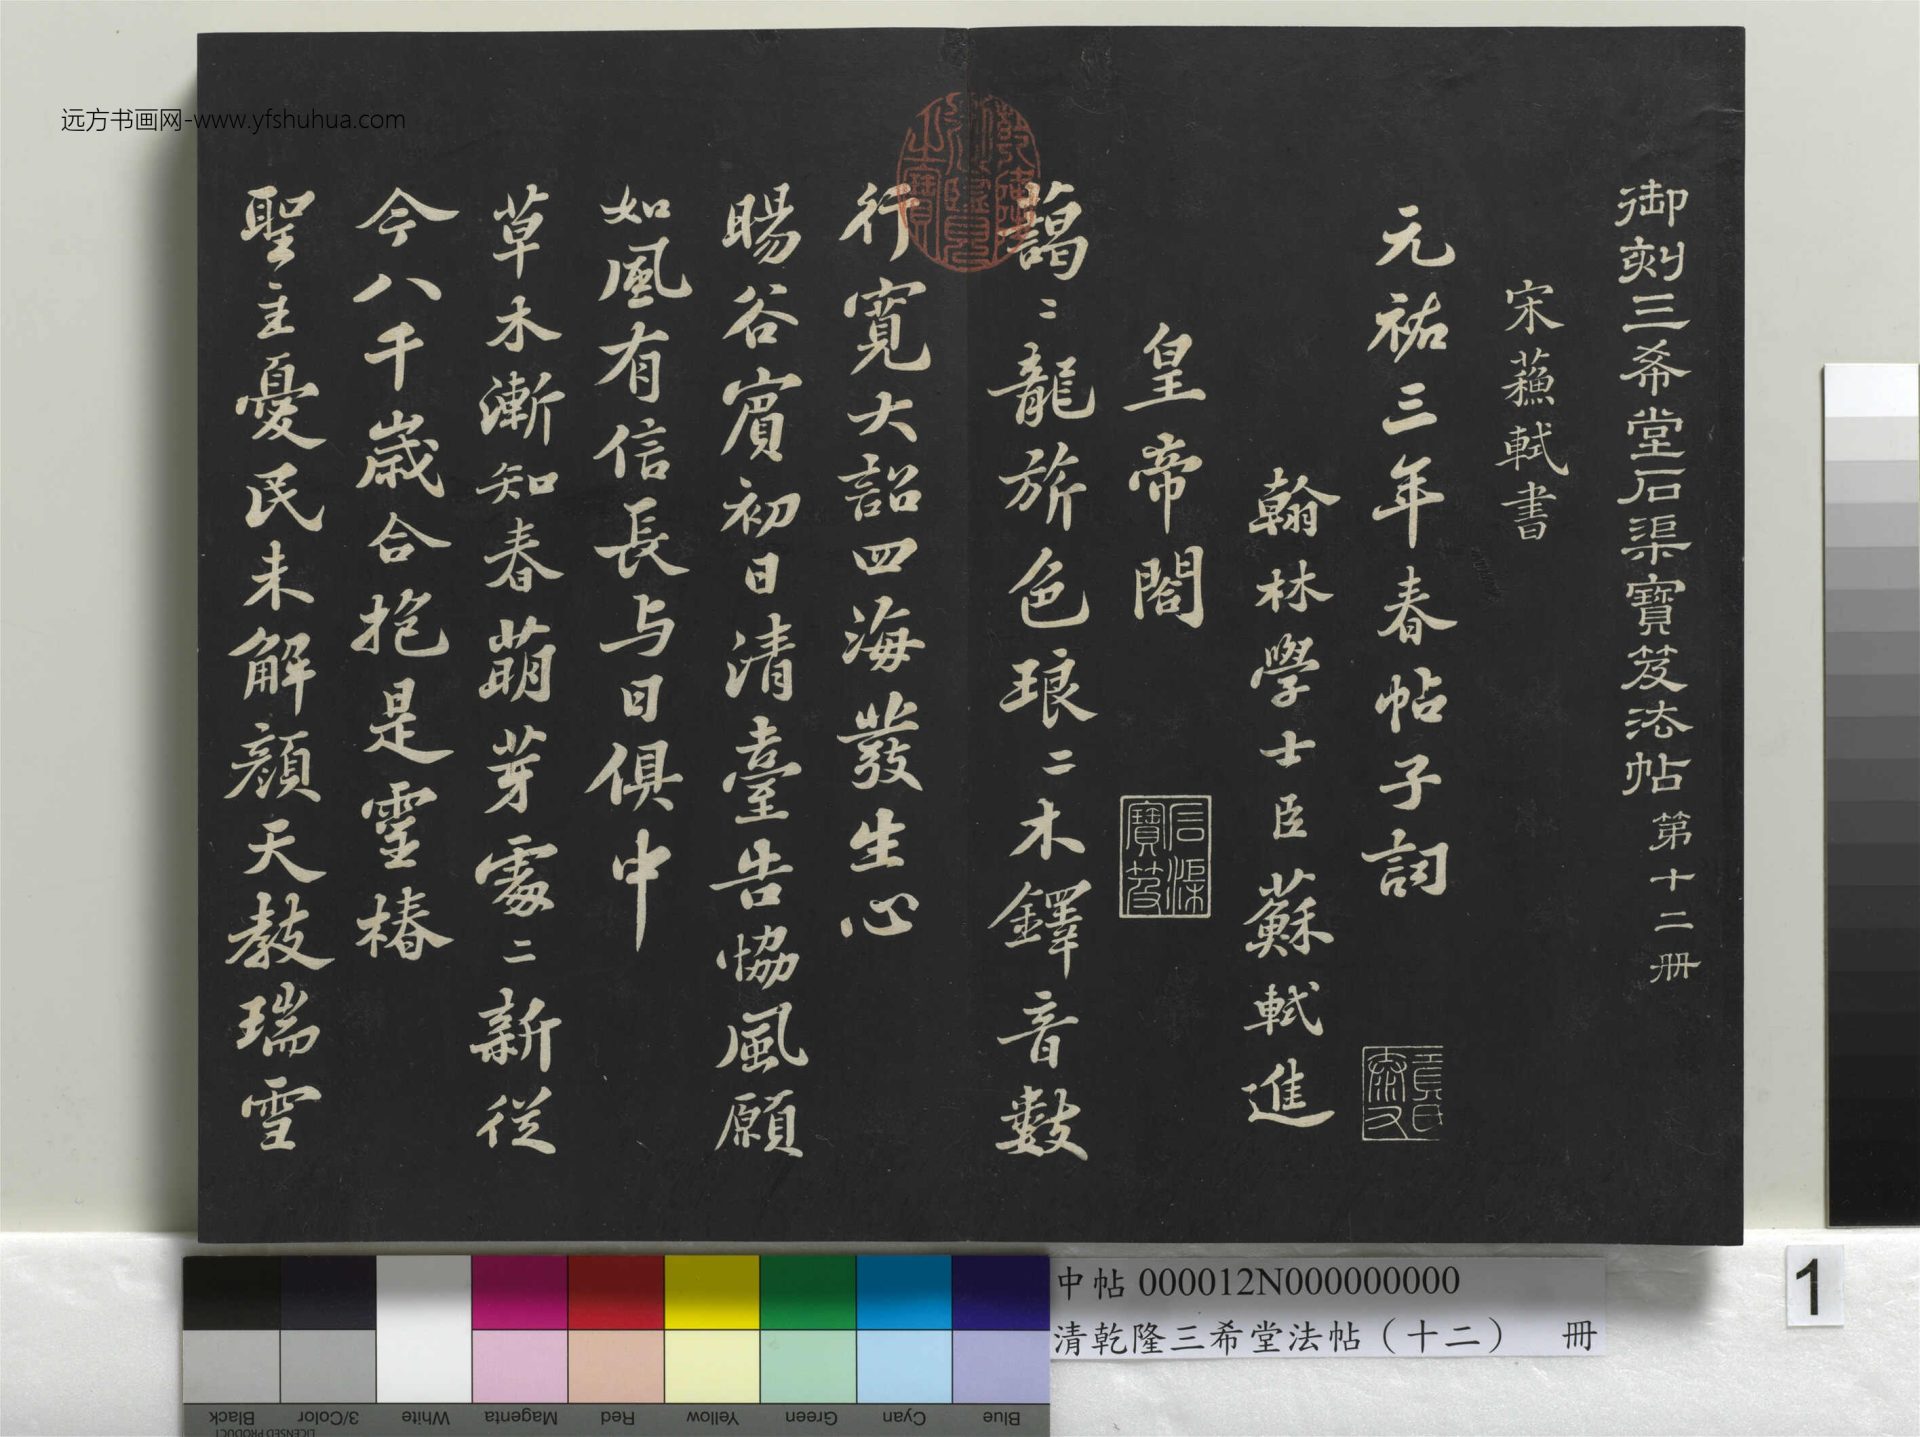 御刻三希堂石渠寶笈法帖第十二册
宋蘓軾書
元祐三年春帖子詞
翰林學士臣蘇軾進
皇帝閣
藹〻龍旂色琅〻木鐸音數
行寬大詔四海發生心
暘谷賓初日清臺告協風願
如風有信長与日俱中
草木漸知春萌芽處〻新從
今八千歲合抱是靈椿
聖主憂民未解顏天教瑞雪
石渠寶笈
远方书画网-www.yfshuhua.com
中帖 000012N000000000
清乾隆三希堂法帖（十二） 冊
1
Black
3/Color
White
Magenta
Red
Yellow
Green
Cyan
Blue
LICENSED PRODUCT